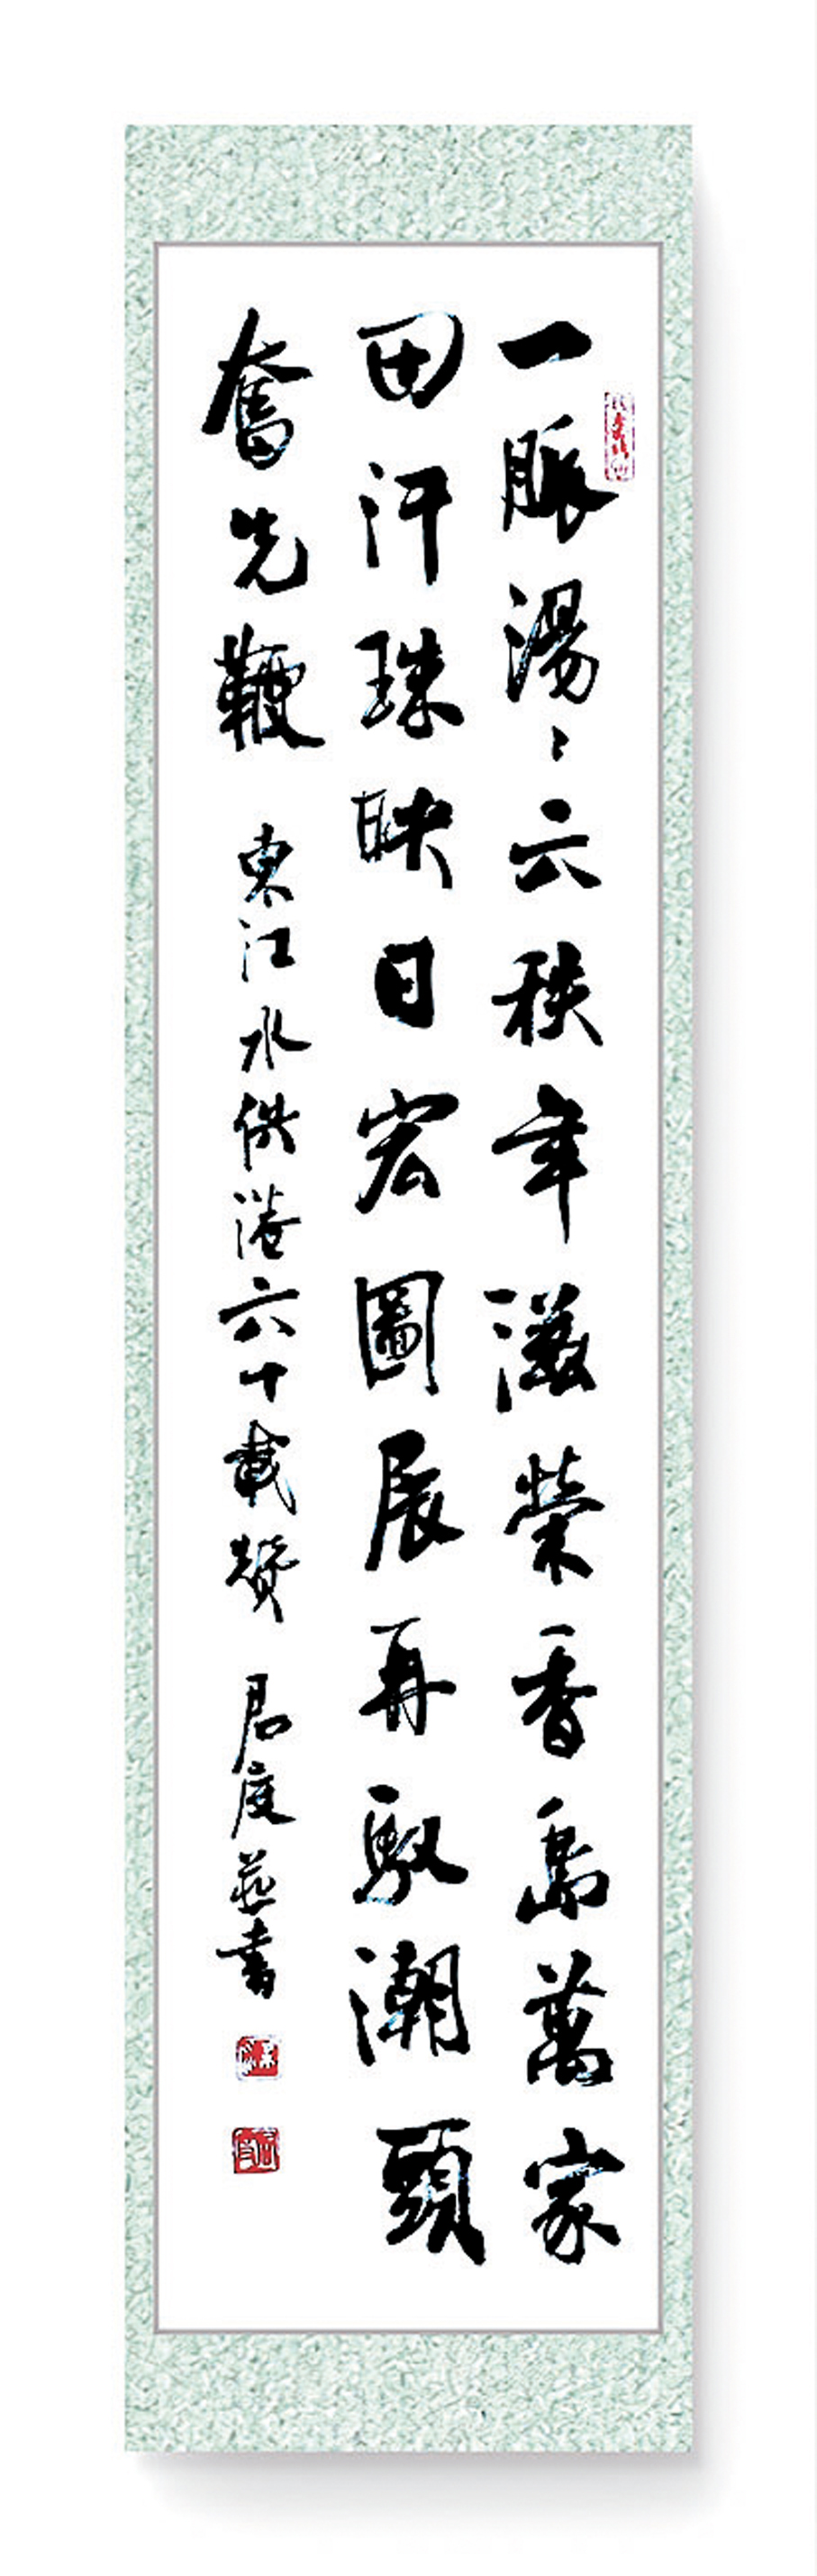 一脈湯〻六秩年滋榮香島萬家
田汗珠映日宏圖展再馭潮頭
奮先鞭 東江水供港六十載贊 君度並書